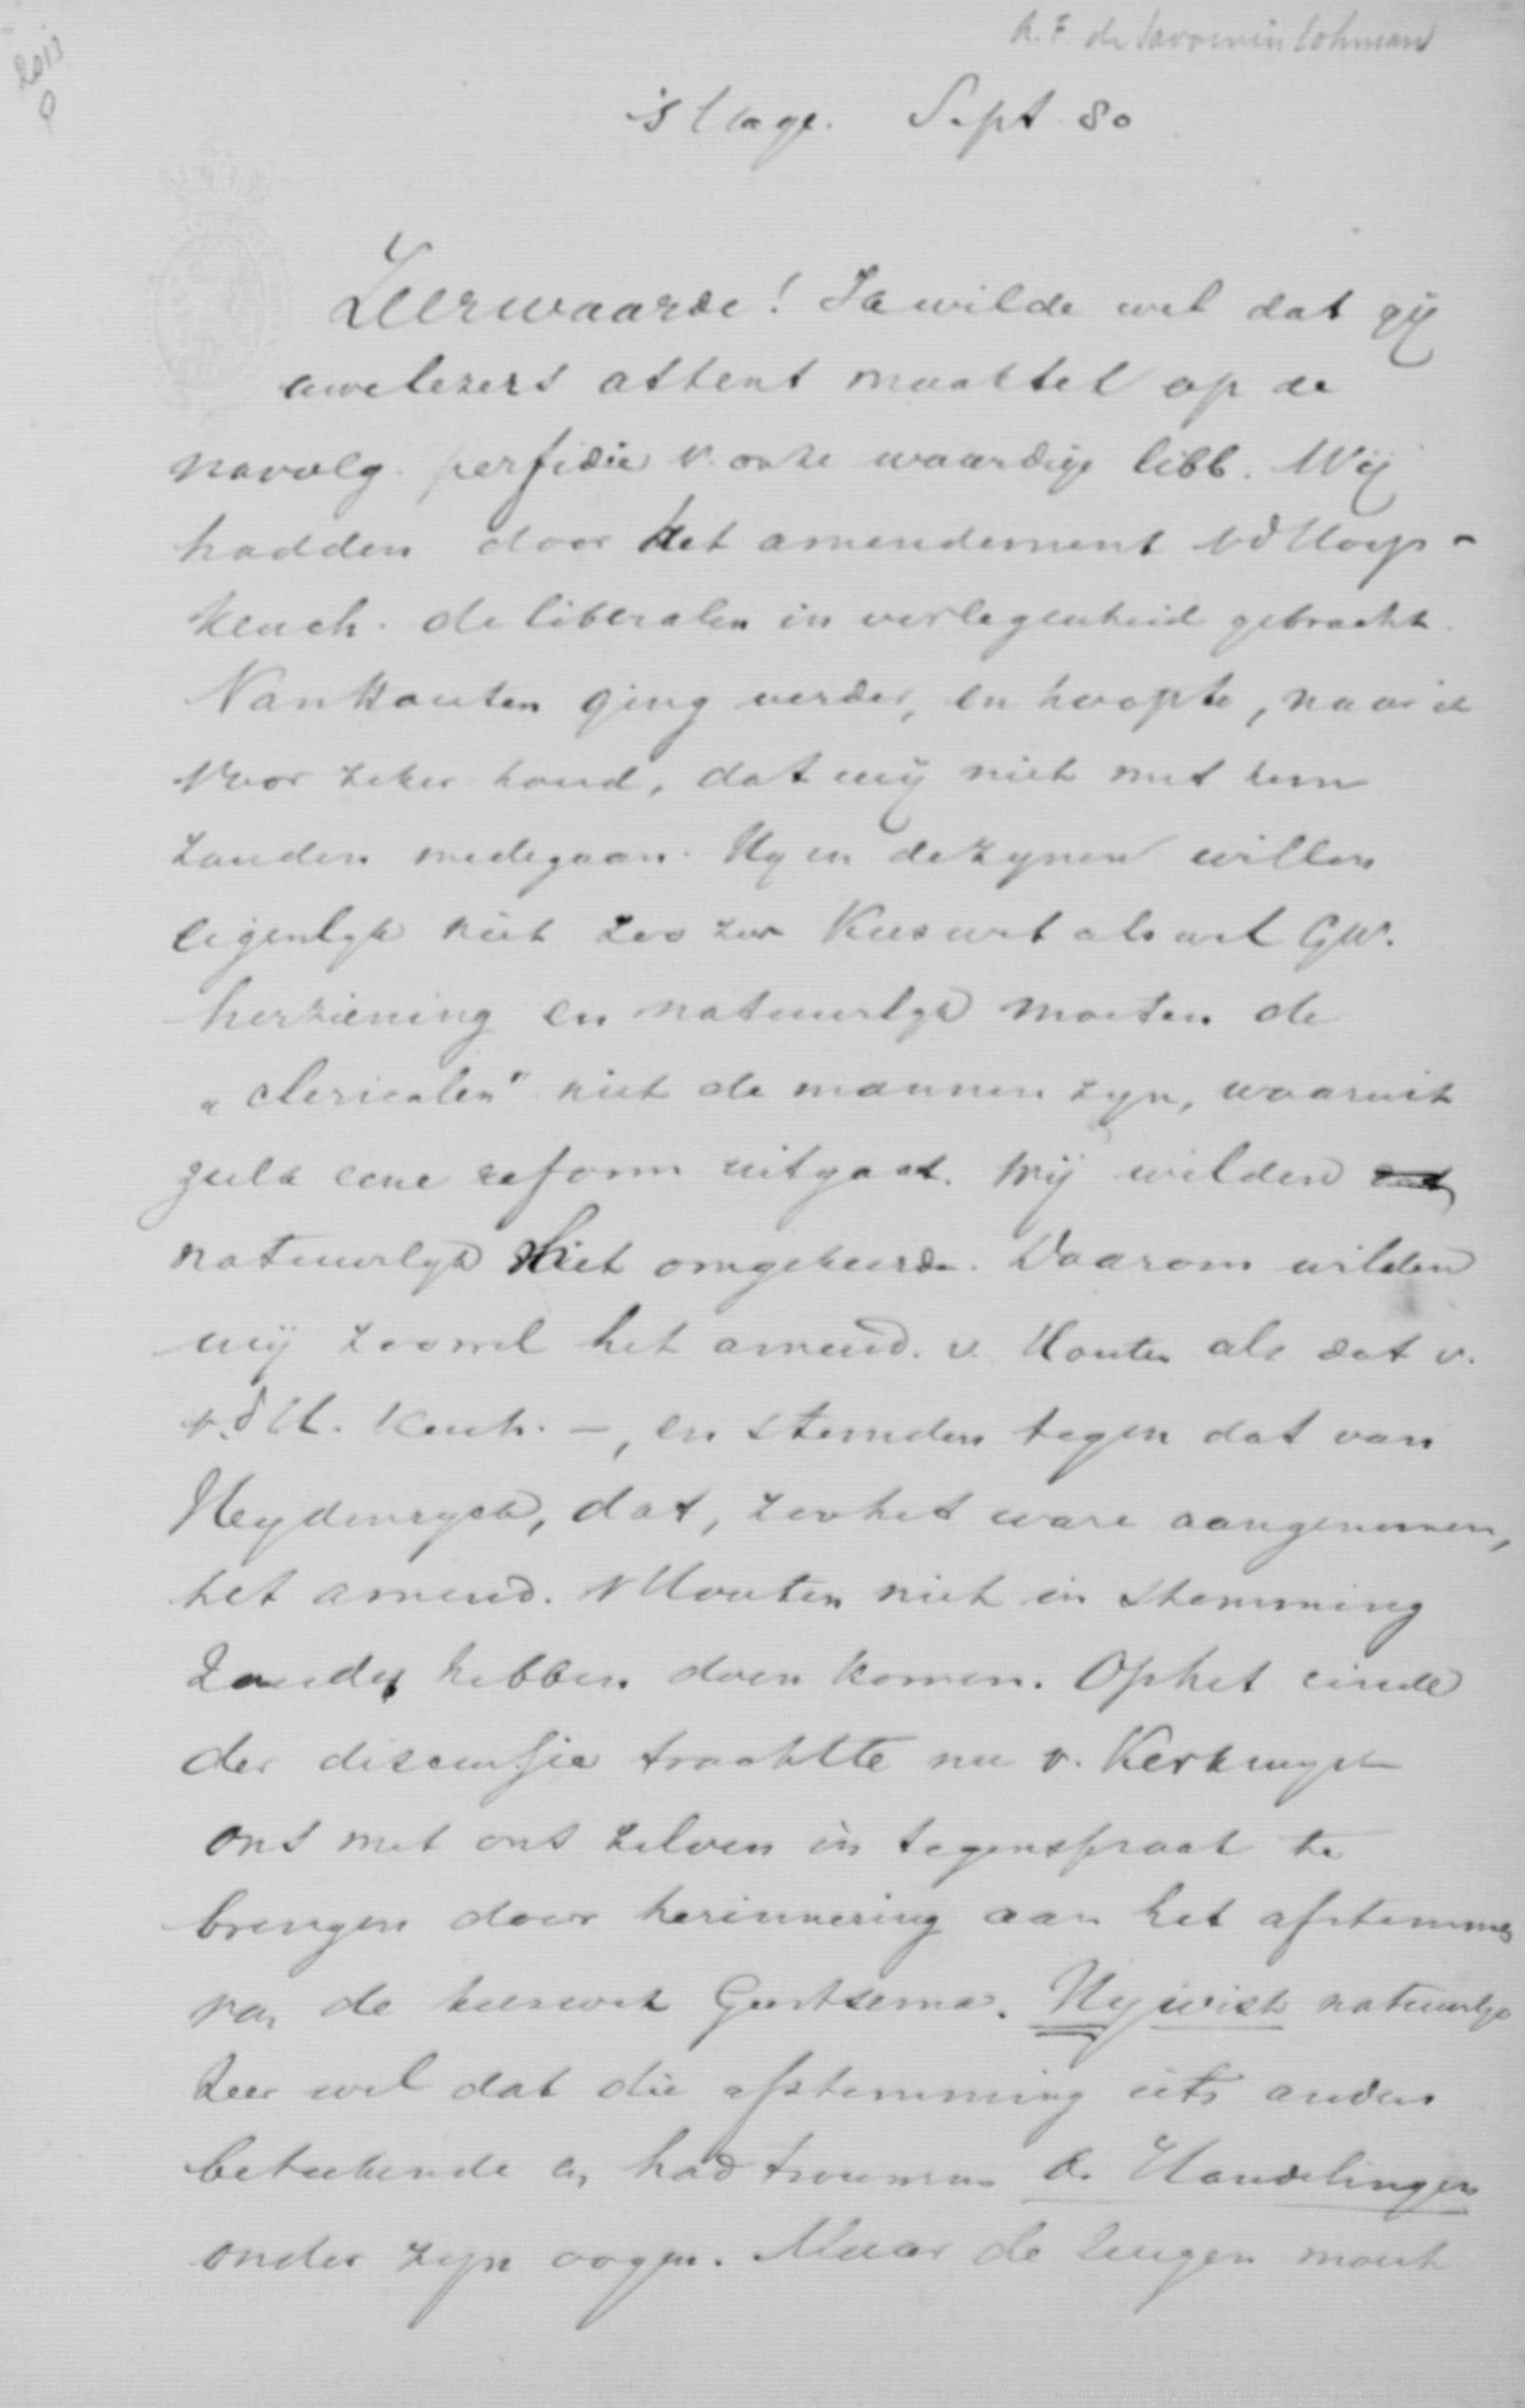 A.F. de Savornin Lohman
2013
's Hage. Sept 80
Zeerwaarde! Ik wilde wel dat gij
uwe lezers attent maaktet op de
navolg. perfidie v. onze waardige libb. Wij
hadden door het amendement vd Hoop-
Keuch. de liberalen in verlegenheid gebracht.
Van Houten ging verder, en hoopte, naar ik
voor zeker houd, dat wij niet met hem
zouden medegaan. Hy en de zynen willen
eigenlyk niet zoo zeer Kieswet als wel GW.
herziening en natuurlyk moeten de
"clericalen" niet de mannen zyn, waaruit
zulk eene reform uitgaat. Wij wilden dat
natuurlyk Niet omgekeerde. Daarom wilden
wij zoowel het amend. v. Houten als dat v.
v.d H. Keuch. —, en stemden tegen dat van
Heydenryck, dat, zoo het ware aangenomen,
het amend. v Houten niet in stemming
zoude hebben doen komen. Op het einde
der discussie trachtte nu v. Kerkwyk
ons met ons zelven in tegenspraak te
brengen door herinnering aan het afstemmen
van de kieswet Geertsema. Hy wist natuurlyk
zeer wel dat die afstemming iets anders
beteekende en had trouwens de Handelingen
onder zyn oogen. Maar de leugen moest